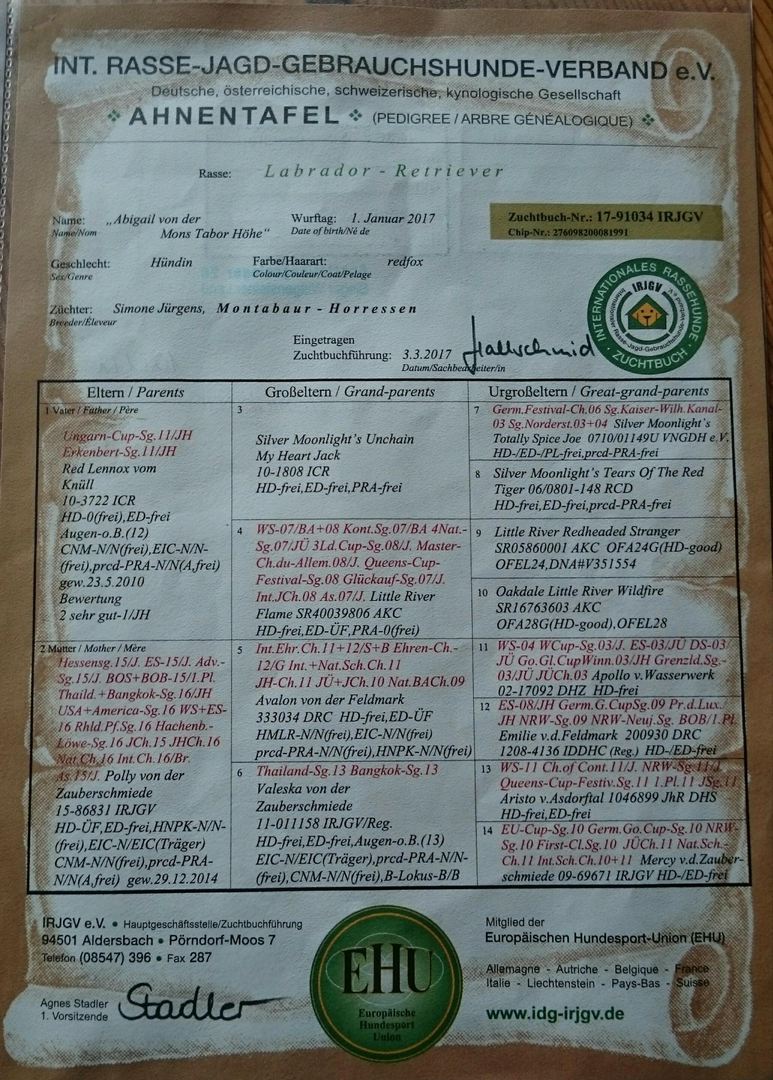 INT. RASSE-JAGD-GEBRAUCHSHUNDE-VERBAND e.V.
Deutsche, österreichische, schweizerische, kynologische Gesellschaft
AHNENTAFEL (PEDIGREE / ARBRE GÉNÉALOGIQUE)
Rasse: Labrador - Retriever
Name: „Abigail von der
Name/Nom Mons Tabor Höhe"
Wurftag: 1. Januar 2017
Date of birth/Né de
Zuchtbuch-Nr.: 17-91034 IRJGV
Chip-Nr.: 276098200081991
Geschlecht: Hündin
Sex/Genre
Farbe/Haarart: redfox
Colour/Couleur/Coat/Pelage
Züchter: Simone Jürgens, Montabaur - Horressen
Breeder/Éleveur
Eingetragen
Zuchtbuchführung: 3.3.2017
Datum/Sachbearbeiter/in
INTERNATIONALES RASSEHUNDE
ZUCHTBUCH
IRJGV
Eltern / Parents
1 Vater / Father / Père
Ungarn-Cup-Sg.11/JH
Erkenbert-Sg.11/JH
Red Lennox vom
Knüll
10-3722 ICR
HD-0(frei),ED-frei
Augen-o.B.(12)
CNM-N/N(frei),EIC-N/N-
(frei),prcd-PRA-N/N(A,frei)
gew.23.5.2010
Bewertung
2 sehr gut-1/JH
2 Mutter / Mother / Mère
Hessensg.15/J. ES-15/J. Adv.-
Sg.15/J. BOS+BOB-15/1.Pl.
Thaild.+Bangkok-Sg.16/JH
USA+America-Sg.16 WS+ES-
16 Rhld.Pf.Sg.16 Hachenb.-
Löwe-Sg.16 JCh.15 JHCh.16
Nat.Ch.16 Int.Ch.16/Br.
As.15/J. Polly von der
Zauberschmiede
15-86831 IRJGV
HD-ÜF,ED-frei,HNPK-N/N-
(frei),EIC-N/EIC(Träger)
CNM-N/N(frei),prcd-PRA-
N/N(A,frei) gew.29.12.2014
Großeltern / Grand-parents
3
Silver Moonlight's Unchain
My Heart Jack
10-1808 ICR
HD-frei,ED-frei,PRA-frei
4 WS-07/BA+08 Kont.Sg.07/BA 4Nat.-
Sg.07/JÜ 3Ld.Cup-Sg.08/J. Master-
Ch.du-Allem.08/J. Queens-Cup-
Festival-Sg.08 Glückauf-Sg.07/J.
Int.JCh.08 As.07/J. Little River
Flame SR40039806 AKC
HD-frei,ED-ÜF,PRA-0(frei)
5 Int.Ehr.Ch.11+12/S+B Ehren-Ch.-
12/G Int.+Nat.Sch.Ch.11
JH-Ch.11 JÜ+JCh.10 Nat.BACh.09
Avalon von der Feldmark
333034 DRC HD-frei,ED-ÜF
HMLR-N/N(frei),EIC-N/N(frei)
prcd-PRA-N/N(frei),HNPK-N/N(frei)
6 Thailand-Sg.13 Bangkok-Sg.13
Valeska von der
Zauberschmiede
11-011158 IRJGV/Reg.
HD-frei,ED-frei,Augen-o.B.(13)
EIC-N/EIC(Träger),prcd-PRA-N/N-
(frei),CNM-N/N(frei),B-Lokus-B/B
Urgroßeltern / Great-grand-parents
7 Germ.Festival-Ch.06 Sg.Kaiser-Wilh.Kanal-
03 Sg.Norderst.03+04 Silver Moonlight's
Totally Spice Joe 0710/01149U VNGDH e.V.
HD-/ED-/PL-frei,prcd-PRA-frei
8 Silver Moonlight's Tears Of The Red
Tiger 06/0801-148 RCD
HD-frei,ED-frei,prcd-PRA-frei
9 Little River Redheaded Stranger
SR05860001 AKC OFA24G(HD-good)
OFEL24,DNA#V351554
10 Oakdale Little River Wildfire
SR16763603 AKC
OFA28G(HD-good),OFEL28
11 WS-04 WCup-Sg.03/J. ES-03/JÜ DS-03/
JÜ Go.Gl.CupWinn.03/JH Grenzld.Sg.-
03/JÜ JÜCh.03 Apollo v.Wasserwerk
02-17092 DHZ HD-frei
12 ES-08/JH Germ.G.CupSg.09 Pr.d.Lux./
JH NRW-Sg.09 NRW-Neuj.Sg. BOB/1.Pl.
Emilie v.d.Feldmark 200930 DRC
1208-4136 IDDHC (Reg.) HD-/ED-frei
13 WS-11 Ch.of Cont.11/J. NRW-Sg.11/J.
Queens-Cup-Festiv.Sg.11 1.Pl.11 JSg.11
Aristo v.Asdorftal 1046899 JhR DHS
HD-frei,ED-frei
14 EU-Cup-Sg.10 Germ.Go.Cup-Sg.10 NRW-
Sg.10 First-Cl.Sg.10 JÜCh.11 Nat.Sch.-
Ch.11 Int.Sch.Ch.10+11 Mercy v.d.Zauber-
schmiede 09-69671 IRJGV HD-/ED-frei
IRJGV e.V. • Hauptgeschäftsstelle/Zuchtbuchführung
94501 Aldersbach • Pörndorf-Moos 7
Telefon (08547) 396 • Fax 287
Agnes Stadler
1. Vorsitzende
Stadler
EHU
Europäische
Hundesport
Union
Mitglied der
Europäischen Hundesport-Union (EHU)
Allemagne - Autriche - Belgique - France
Italie - Liechtenstein - Pays-Bas - Suisse
www.idg-irjgv.de